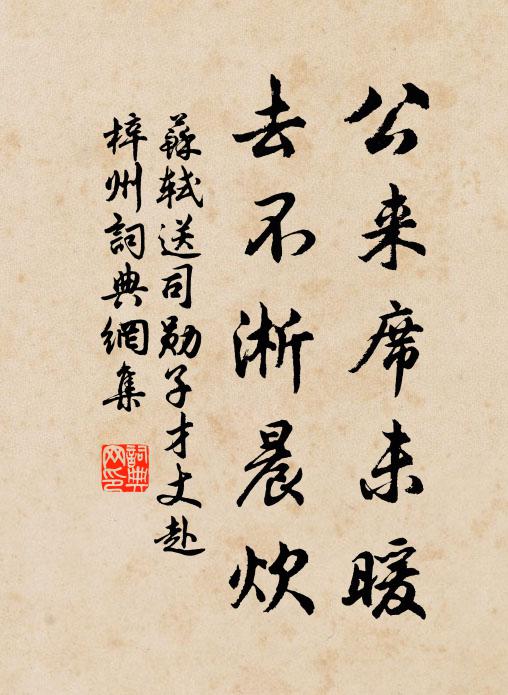 公来席未暖
去不淅晨炊
蘇轼送司勋子才丈赴
梓州詞典網集
詞典网印